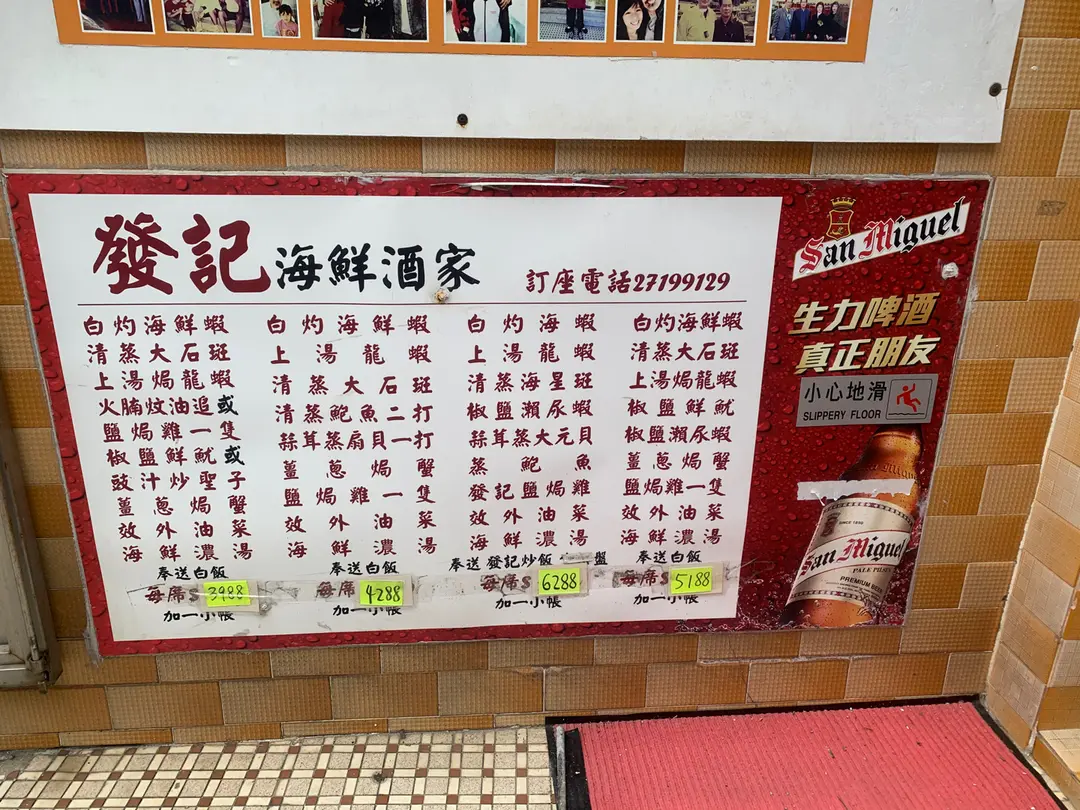 發記海鮮酒家 訂座電話27199129
白灼海鮮蝦
清蒸大石斑
上湯焗龍蝦
火腩炆油追或
鹽焗雞一隻
椒鹽鮮魷或
豉汁炒聖子
薑蔥焗蟹
效外油菜
海鮮濃湯
奉送白飯
每席$3988
加一小帳
白灼海鮮蝦
上湯龍蝦
清蒸大石斑
清蒸鮑魚二打
蒜茸蒸扇貝一打
薑蔥焗蟹
鹽焗雞一隻
效外油菜
海鮮濃湯
奉送白飯
每席$4288
加一小帳
白灼海蝦
上湯龍蝦
清蒸海星斑
椒鹽瀨尿蝦
蒜茸蒸大元貝
蒸鮑魚
發記鹽焗雞
效外油菜
海鮮濃湯
奉送 發記炒飯 盤
每席$6288
加一小帳
白灼海鮮蝦
清蒸大石斑
上湯焗龍蝦
椒鹽鮮魷
椒鹽瀨尿蝦
薑蔥焗蟹
鹽焗雞一隻
效外油菜
海鮮濃湯
奉送白飯
每席$5188
加一小帳
San Miguel
生力啤酒
真正朋友
小心地滑
SLIPPERY FLOOR
SINCE 1890
San Miguel
PALE PILSEN
PREMIUM BEER